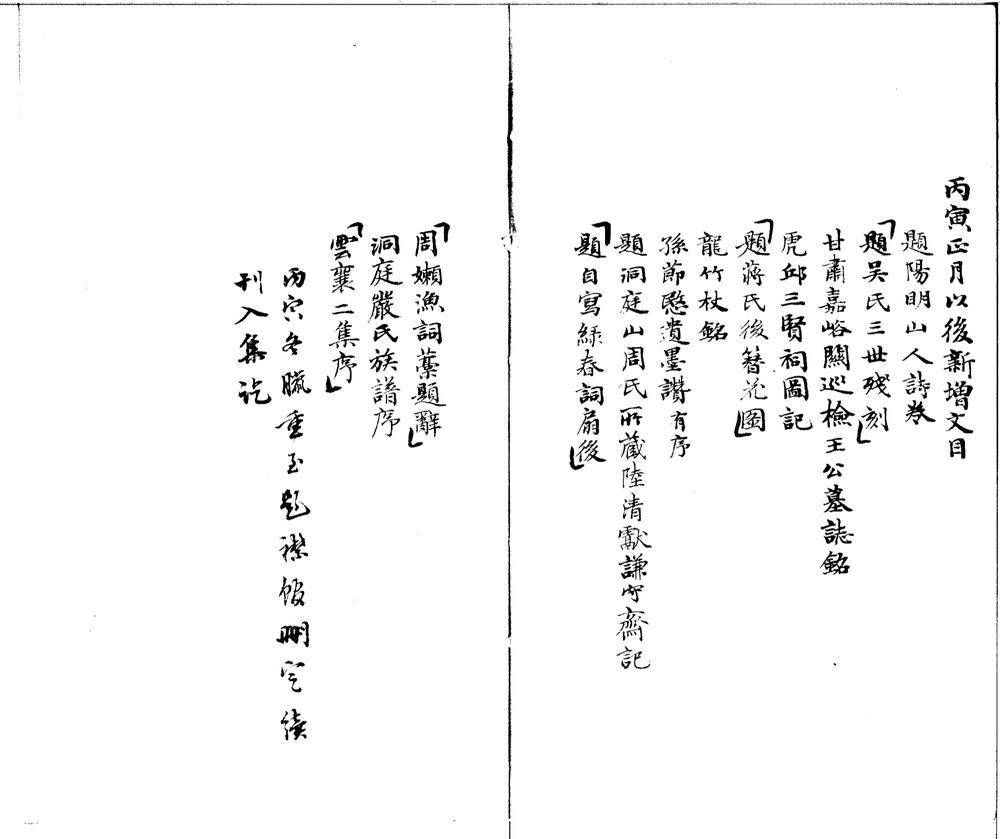 丙寅正月以後新增文目
題陽明山人詩卷
題吴氏三世殘刻
甘肅嘉峪關巡檢王公墓誌銘
虎邱三賢祠圖記
題蔣氏後簪花圖
龍竹杖銘
孫節愍遺墨讚有序
題洞庭山周氏所藏陸清獻謙守齋記
題自寫綠春詞扇後
周嬾漁詞藳題辭
洞庭嚴氏族譜序
雲襄二集序
丙寅冬臘重至題襟館刪定續
刊入集訖